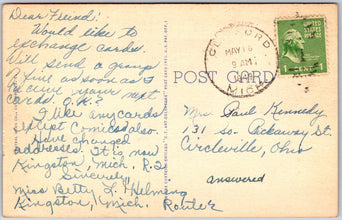 Dear Friend:
Would like to
exchange cards.
Will send a group
of five as soon as I
receive your next
cards. O.K.?
I like any cards
except Comics also.
Have changed
addresses. It is now
Kingston, Mich. R.2
Sincerely
Miss Betty L. Helming
Kingston, Mich.
Route 2
POST CARD
CLIFFORD
MAY 16
9 AM
MICH.
UNITED STATES
1
Mrs Paul Kennedy
131 So. Pickaway St.
Circleville, Ohio
answered